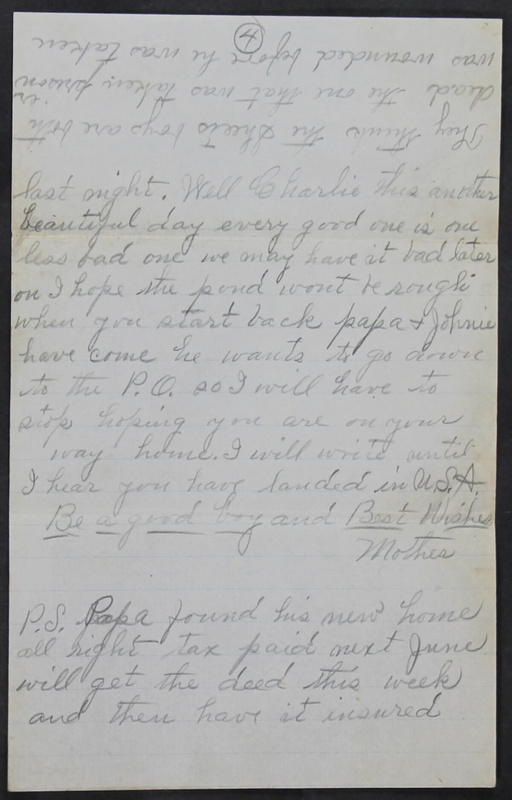 4
last night. Well Charlie this another
beautiful day every good one is one
less bad one we may have it bad later
on I hope the pond wont be rough
when you start back papa & Johnie
have come he wants to go down
to the P.O. so I will have to
stop hoping you are on your
way home. I will write until
I hear you have landed in U.S.A.
Be a good boy and Best Wishes
Mother
P.S. Papa found his new home
all right tax paid next June
will get the deed this week
and then have it insured
They think the Sheets boys are both
dead the one that was taken prisoner
was wounded before he was taken